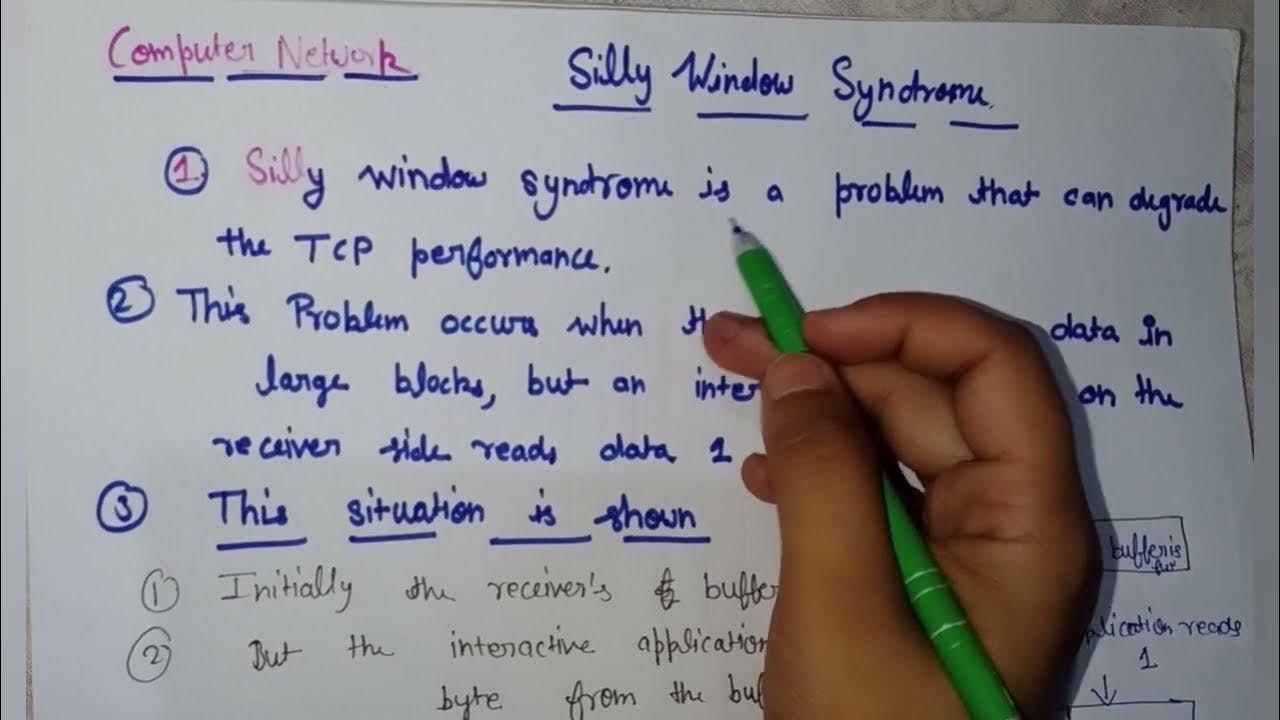 Computer Network
Silly Window Syndrome.
1. Silly window syndrome is a problem that can degrade
the TCP performance.
2 This Problem occurs when data in
large blocks, but an on the
receiver side reads data 1
3 This situation is shown
1 Initially the receiver's
2 But the interactive application
byte from the
buffer is
reads
1